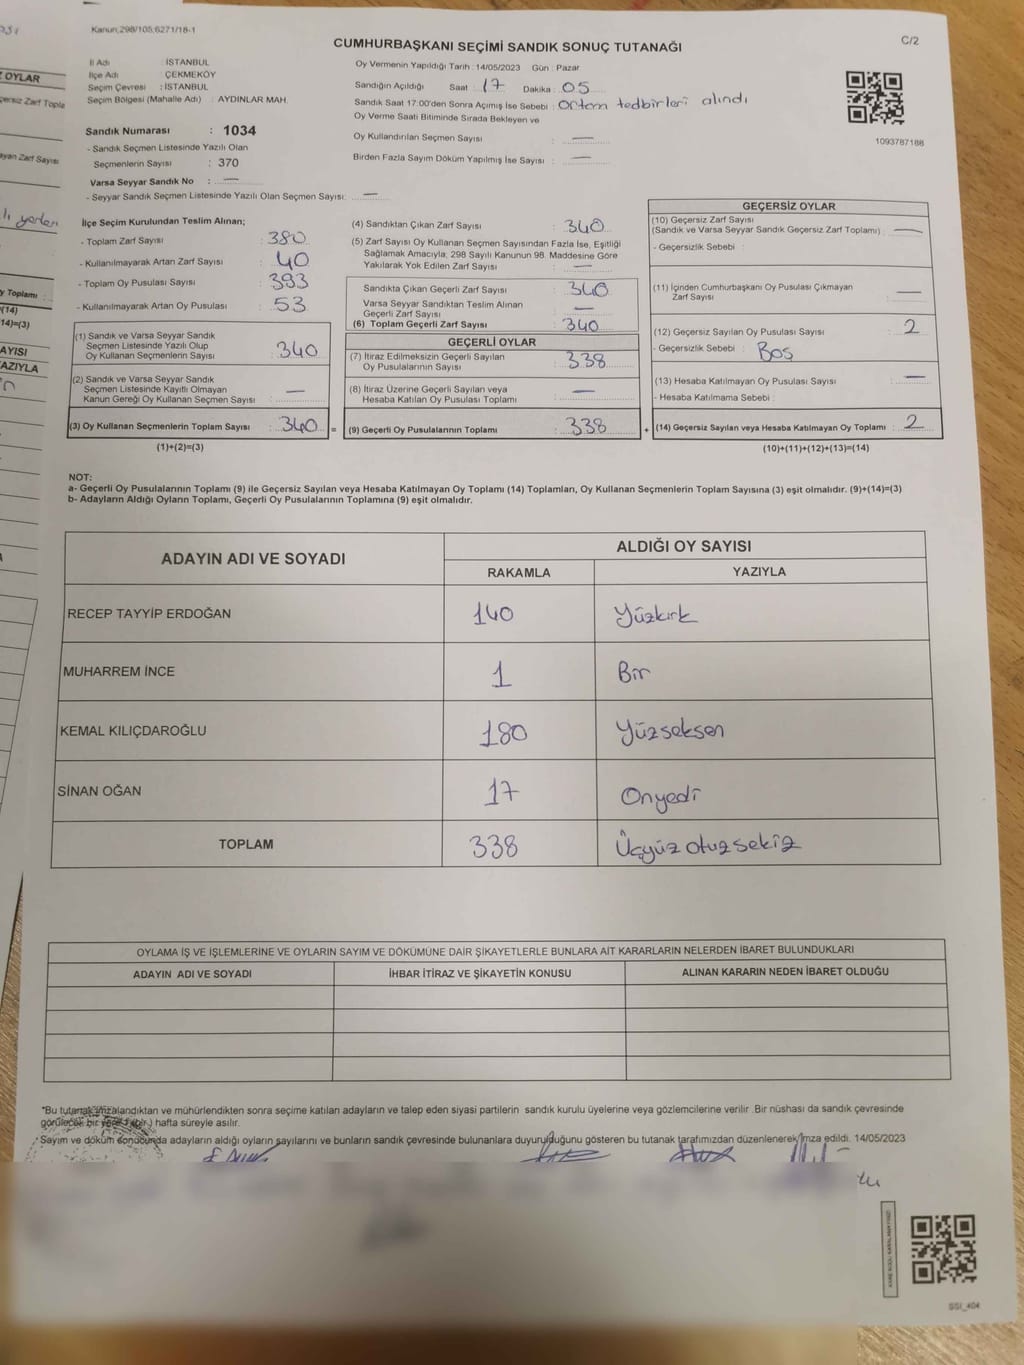 Kanun;298/105;6271/18-1
C/2
CUMHURBAŞKANI SEÇİMİ SANDIK SONUÇ TUTANAĞI
İl Adı : İSTANBUL
İlçe Adı : ÇEKMEKÖY
Seçim Çevresi : İSTANBUL
Seçim Bölgesi (Mahalle Adı) : AYDINLAR MAH.
Sandık Numarası : 1034
- Sandık Seçmen Listesinde Yazılı Olan
Seçmenlerin Sayısı : 370
Varsa Seyyar Sandık No : —
- Seyyar Sandık Seçmen Listesinde Yazılı Olan Seçmen Sayısı: —
Oy Vermenin Yapıldığı Tarih : 14/05/2023 Gün : Pazar
Sandığın Açıldığı Saat : 17 Dakika : 05
Sandık Saat 17:00'den Sonra Açımış İse Sebebi : Ortam tedbirleri alındı
Oy Verme Saati Bitiminde Sırada Bekleyen ve
Oy Kullandırılan Seçmen Sayısı : —
Birden Fazla Sayım Döküm Yapılmış İse Sayısı : —
1093787188
İlçe Seçim Kurulundan Teslim Alınan;
- Toplam Zarf Sayısı : 380
- Kullanılmayarak Artan Zarf Sayısı : 40
- Toplam Oy Pusulası Sayısı : 393
- Kullanılmayarak Artan Oy Pusulası : 53
(1) Sandık ve Varsa Seyyar Sandık
Seçmen Listesinde Yazılı Olup
Oy Kullanan Seçmenlerin Sayısı : 340
(2) Sandık ve Varsa Seyyar Sandık
Seçmen Listesinde Kayıtlı Olmayan
Kanun Gereği Oy Kullanan Seçmen Sayısı : —
(3) Oy Kullanan Seçmenlerin Toplam Sayısı : 340
(1)+(2)=(3)
(4) Sandıktan Çıkan Zarf Sayısı : 340
(5) Zarf Sayısı Oy Kullanan Seçmen Sayısından Fazla İse, Eşitliği
Sağlamak Amacıyla, 298 Sayılı Kanunun 98. Maddesine Göre
Yakılarak Yok Edilen Zarf Sayısı : —
Sandıkta Çıkan Geçerli Zarf Sayısı : 340
Varsa Seyyar Sandıktan Teslim Alınan
Geçerli Zarf Sayısı : —
(6) Toplam Geçerli Zarf Sayısı : 340
GEÇERLİ OYLAR
(7) İtiraz Edilmeksizin Geçerli Sayılan
Oy Pusulalarının Sayısı : 338
(8) İtiraz Üzerine Geçerli Sayılan veya
Hesaba Katılan Oy Pusulası Toplamı : —
= (9) Geçerli Oy Pusulalarının Toplamı : 338
GEÇERSİZ OYLAR
(10) Geçersiz Zarf Sayısı
(Sandık ve Varsa Seyyar Sandık Geçersiz Zarf Toplamı) : —
- Geçersizlik Sebebi :
(11) İçinden Cumhurbaşkanı Oy Pusulası Çıkmayan
Zarf Sayısı : —
(12) Geçersiz Sayılan Oy Pusulası Sayısı : 2
- Geçersizlik Sebebi : Boş
(13) Hesaba Katılmayan Oy Pusulası Sayısı : —
- Hesaba Katılmama Sebebi :
+ (14) Geçersiz Sayılan veya Hesaba Katılmayan Oy Toplamı : 2
(10)+(11)+(12)+(13)=(14)
NOT:
a- Geçerli Oy Pusulalarının Toplamı (9) ile Geçersiz Sayılan veya Hesaba Katılmayan Oy Toplamı (14) Toplamları, Oy Kullanan Seçmenlerin Toplam Sayısına (3) eşit olmalıdır. (9)+(14)=(3)
b- Adayların Aldığı Oyların Toplamı, Geçerli Oy Pusulalarının Toplamına (9) eşit olmalıdır.
ADAYIN ADI VE SOYADI
ALDIĞI OY SAYISI
RAKAMLA YAZIYLA
RECEP TAYYİP ERDOĞAN 140 Yüzkırk
MUHARREM İNCE 1 Bir
KEMAL KILIÇDAROĞLU 180 Yüzseksen
SİNAN OĞAN 17 Onyedi
TOPLAM 338 Üçyüz otuz sekiz
OYLAMA İŞ VE İŞLEMLERİNE VE OYLARIN SAYIM VE DÖKÜMÜNE DAİR ŞİKAYETLERLE BUNLARA AİT KARARLARIN NELERDEN İBARET BULUNDUKLARI
ADAYIN ADI VE SOYADI İHBAR İTİRAZ VE ŞİKAYETİN KONUSU ALINAN KARARIN NEDEN İBARET OLDUĞU
*Bu tutanak imzalandıktan ve mühürlendikten sonra seçime katılan adayların ve talep eden siyasi partilerin sandık kurulu üyelerine veya gözlemcilerine verilir. Bir nüshası da sandık çevresinde
görülecek bir yere 1 (bir) hafta süreyle asılır.
Sayım ve döküm sonucunda adayların aldığı oyların sayılarını ve bunların sandık çevresinde bulunanlara duyurulduğunu gösteren bu tutanak tarafımızdan düzenlenerek imza edildi. 14/05/2023
SSI_404